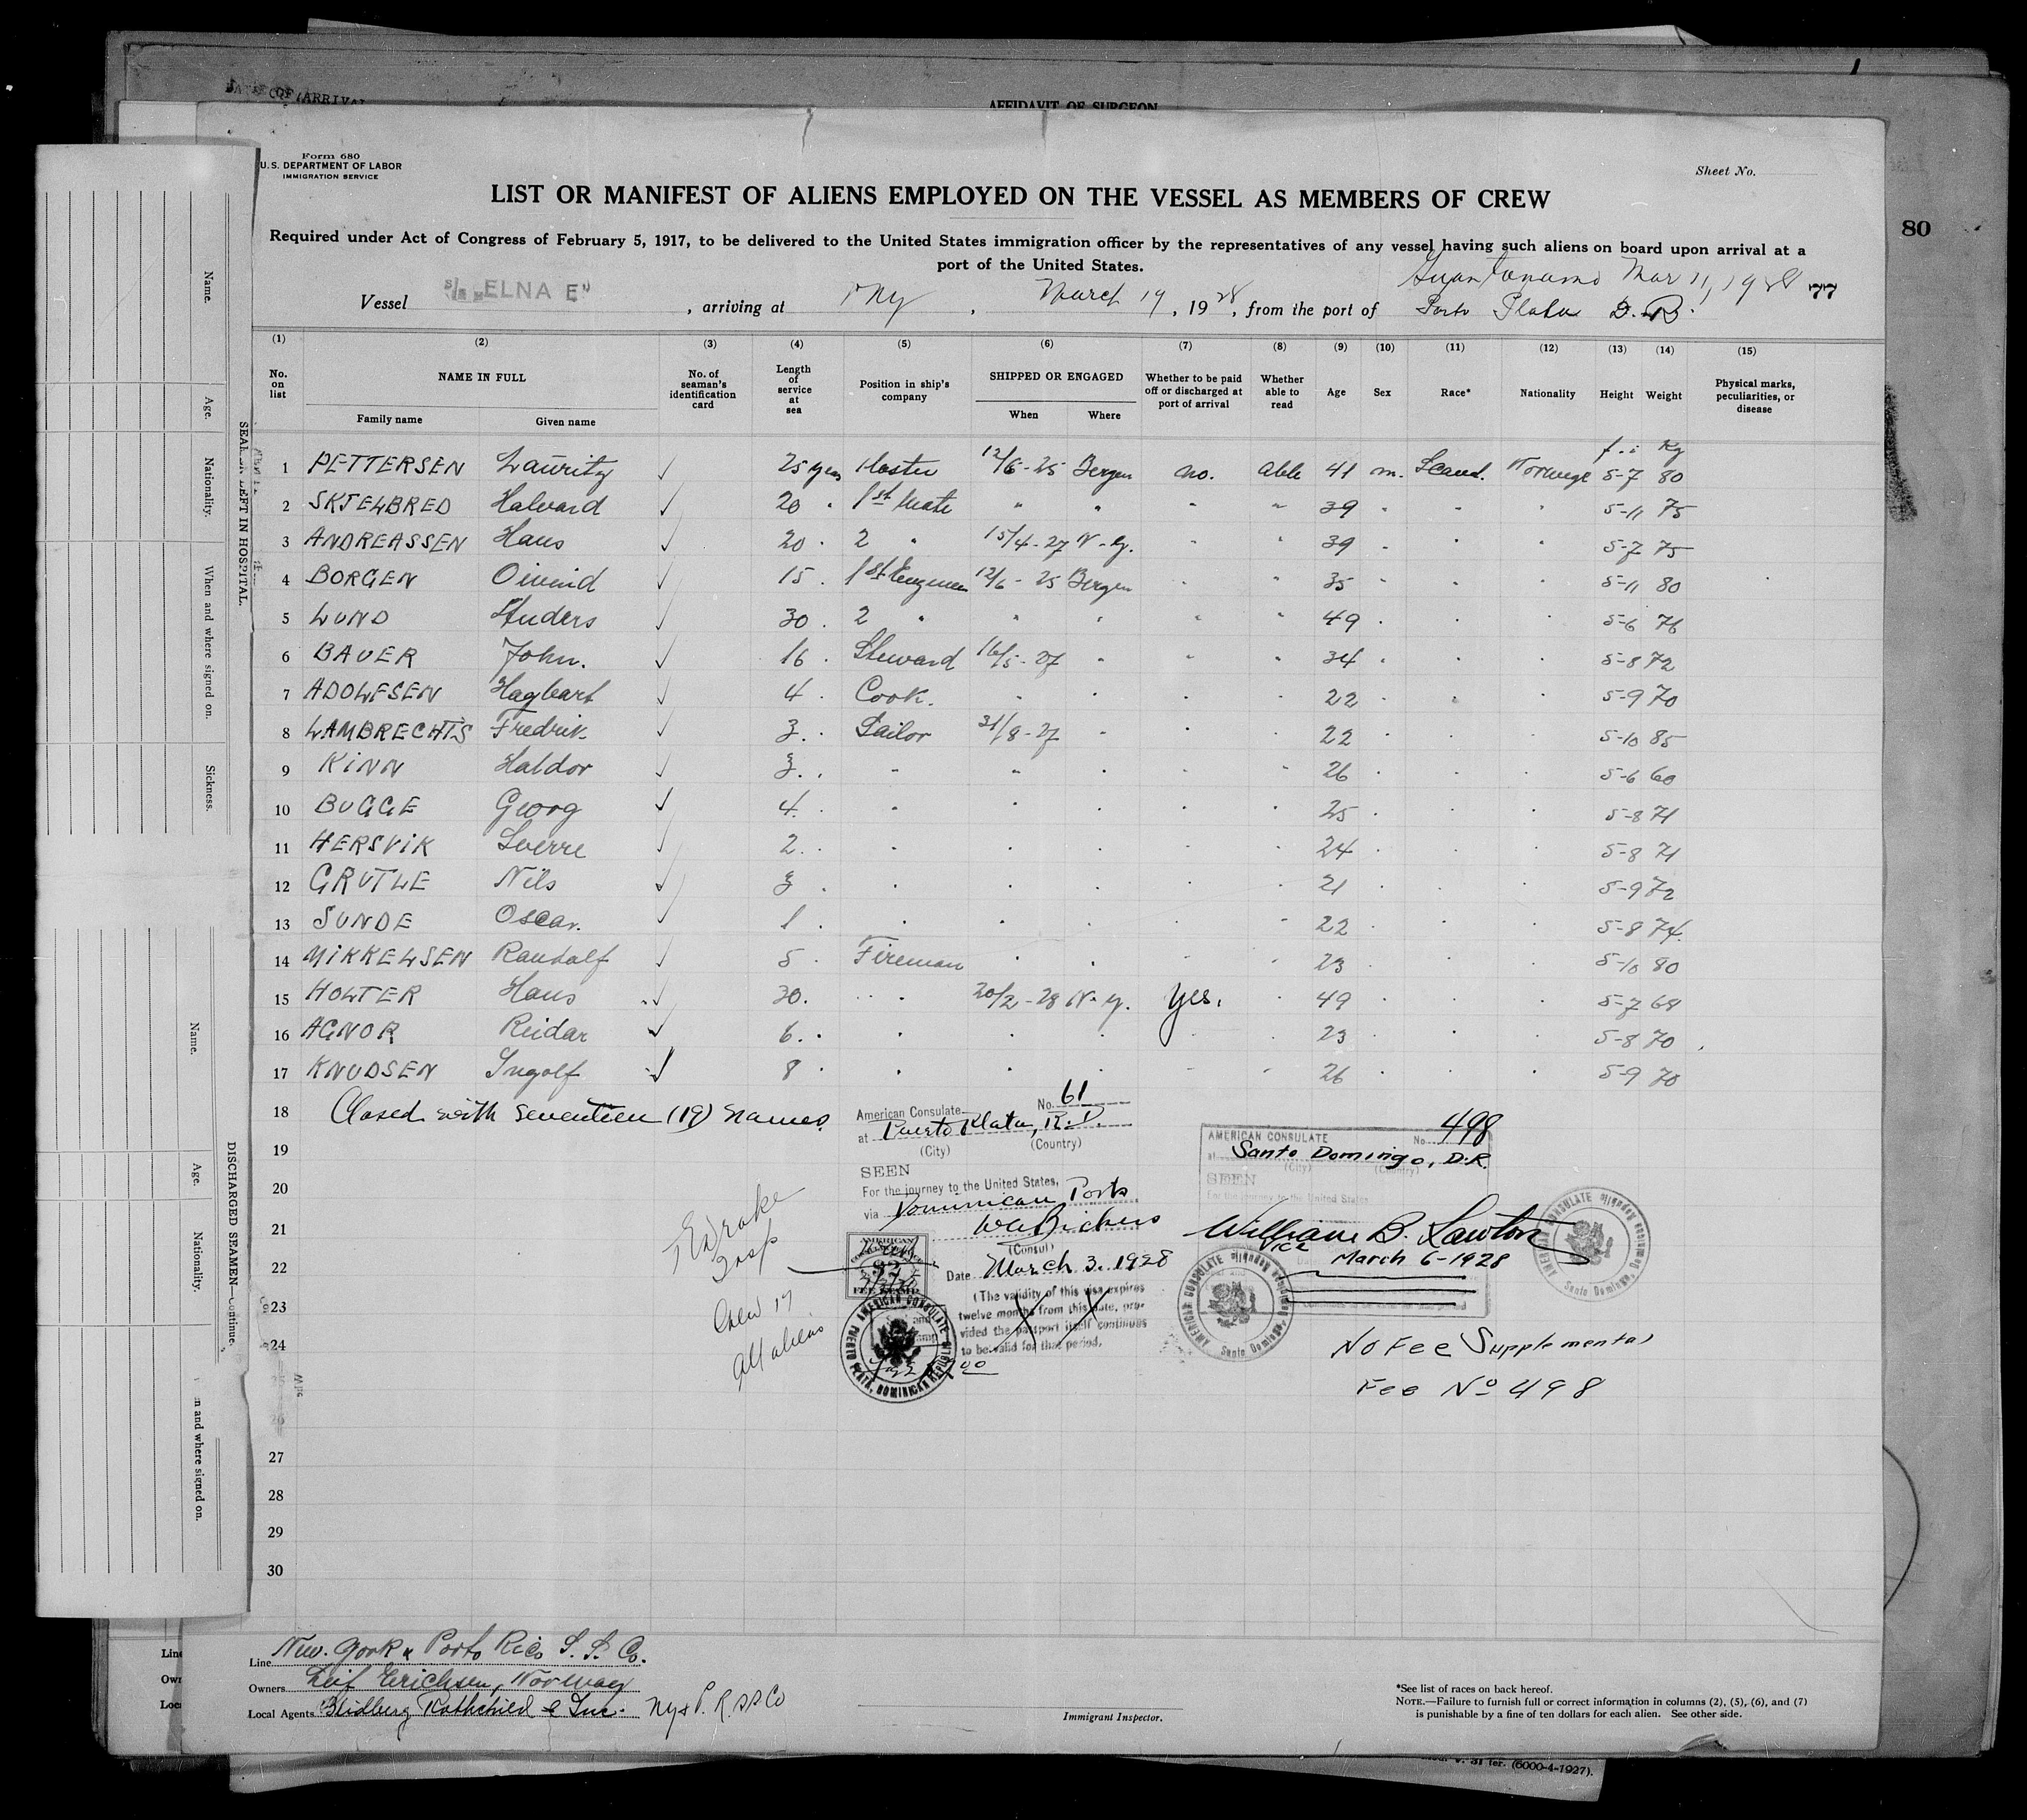 DATE OF ARRIVAL
AFFIDAVIT OF SURGEON
Form 680
U.S. DEPARTMENT OF LABOR
IMMIGRATION SERVICE
Sheet No.
LIST OR MANIFEST OF ALIENS EMPLOYED ON THE VESSEL AS MEMBERS OF CREW
80
Required under Act of Congress of February 5, 1917, to be delivered to the United States immigration officer by the representatives of any vessel having such aliens on board upon arrival at a
port of the United States.
Guantanamo Mar 11, 1928
Vessel S/S "ELNA E", arriving at NY, March 19, 1928, from the port of Porto Plata D.R. 77
(1) (2) (3) (4) (5) (6) (7) (8) (9) (10) (11) (12) (13) (14) (15)
No. on list NAME IN FULL No. of seaman's identification card Length of service at sea Position in ship's company SHIPPED OR ENGAGED Whether to be paid off or discharged at port of arrival Whether able to read Age Sex Race* Nationality Height Weight Physical marks, peculiarities, or disease
Family name Given name When Where
f. i Kg
1 PETTERSEN Lauritz ✓ 25 years Master 12/6-25 Bergen no. able 41 m. Scand. Norwege 5-7 80
2 SKJELBRED Halvard ✓ 20 " 1st Mate " " " " 39 " " " 5-11 75
3 ANDREASSEN Hans ✓ 20 " 2 " 15/4-27 N-Y. " " 39 " " " 5-7 75
4 BORGEN Oivind ✓ 15 " 1st Engineer 12/6-25 Bergen " " 35 " " " 5-11 80
5 LUND Anders ✓ 30 " 2 " " " " " 49 " " " 5-6 76
6 BAUER John. ✓ 16 " Steward 16/5-27 " " " 34 " " " 5-8 72
7 ADOLFSEN Hagbart ✓ 4 " Cook. " " " " 22 " " " 5-9 70
8 LAMBRECHTS Fredrik ✓ 3 " Sailor 31/8-27 " " " 22 " " " 5-10 85
9 KINN Haldor ✓ 3 " " " " " " 26 " " " 5-6 60
10 BUGGE Georg ✓ 4 " " " " " " 25 " " " 5-8 71
11 HERSVIK Sverre ✓ 2 " " " " " " 24 " " " 5-8 71
12 GRUTLE Nils ✓ 3 " " " " " " 21 " " " 5-9 72
13 SUNDE Oscar. ✓ 1 " " " " " " 22 " " " 5-8 74
14 MIKKELSEN Randolf ✓ 5 " Fireman " " " " 23 " " " 5-10 80
15 HOLTER Hans ✓ 30 " " 20/2-28 N-Y. Yes. " 49 " " " 5-7 68
16 AGNOR Reidar ✓ 6 " " " " " " 23 " " " 5-8 70
17 KNUDSEN Ingolf ✓ 8 " " " " " " 26 " " " 5-9 70
18 Closed with seventeen (17) names.
19
20
21
22
23
24
27
28
29
30
American Consulate No. 61
at Puerto Plata, R.D.
(City) (Country)
SEEN
For the journey to the United States,
via Dominican Ports
WA Bickers
(Consul)
Date March 3, 1928
(The validity of this visa expires
twelve months from this date, provided
the passport itself continues
to be valid for that period.
AMERICAN
$2
FEE STAMP
AMERICAN CONSULATE PUERTO PLATA, DOMINICAN REPUBLIC
AMERICAN CONSULATE No. 498
at Santo Domingo, D.R.
(City) (Country)
SEEN
For the journey to the United States
William B. Lawton
Vice
March 6-1928
AMERICAN CONSULATE Santo Domingo, Dominican Republic
AMERICAN CONSULATE Santo Domingo, Dominican Republic
No Fee Supplemental
Fee No 498
Drake
Insp
Crew 17
All aliens
Line New York & Porto Rico S.S. Co.
Owners Leif Erichsen, Norway
Local Agents Rothchild & Inc. NY & P.R. SS Co
Immigrant Inspector.
*See list of races on back hereof.
NOTE.—Failure to furnish full or correct information in columns (2), (5), (6), and (7)
is punishable by a fine of ten dollars for each alien. See other side.
(6000-4-1927).
Name.
Age.
Nationality.
When and where signed on.
Sickness.
SEAMEN LEFT IN HOSPITAL.
Name.
Age.
Nationality.
and where signed on.
DISCHARGED SEAMEN—Continue.
Line